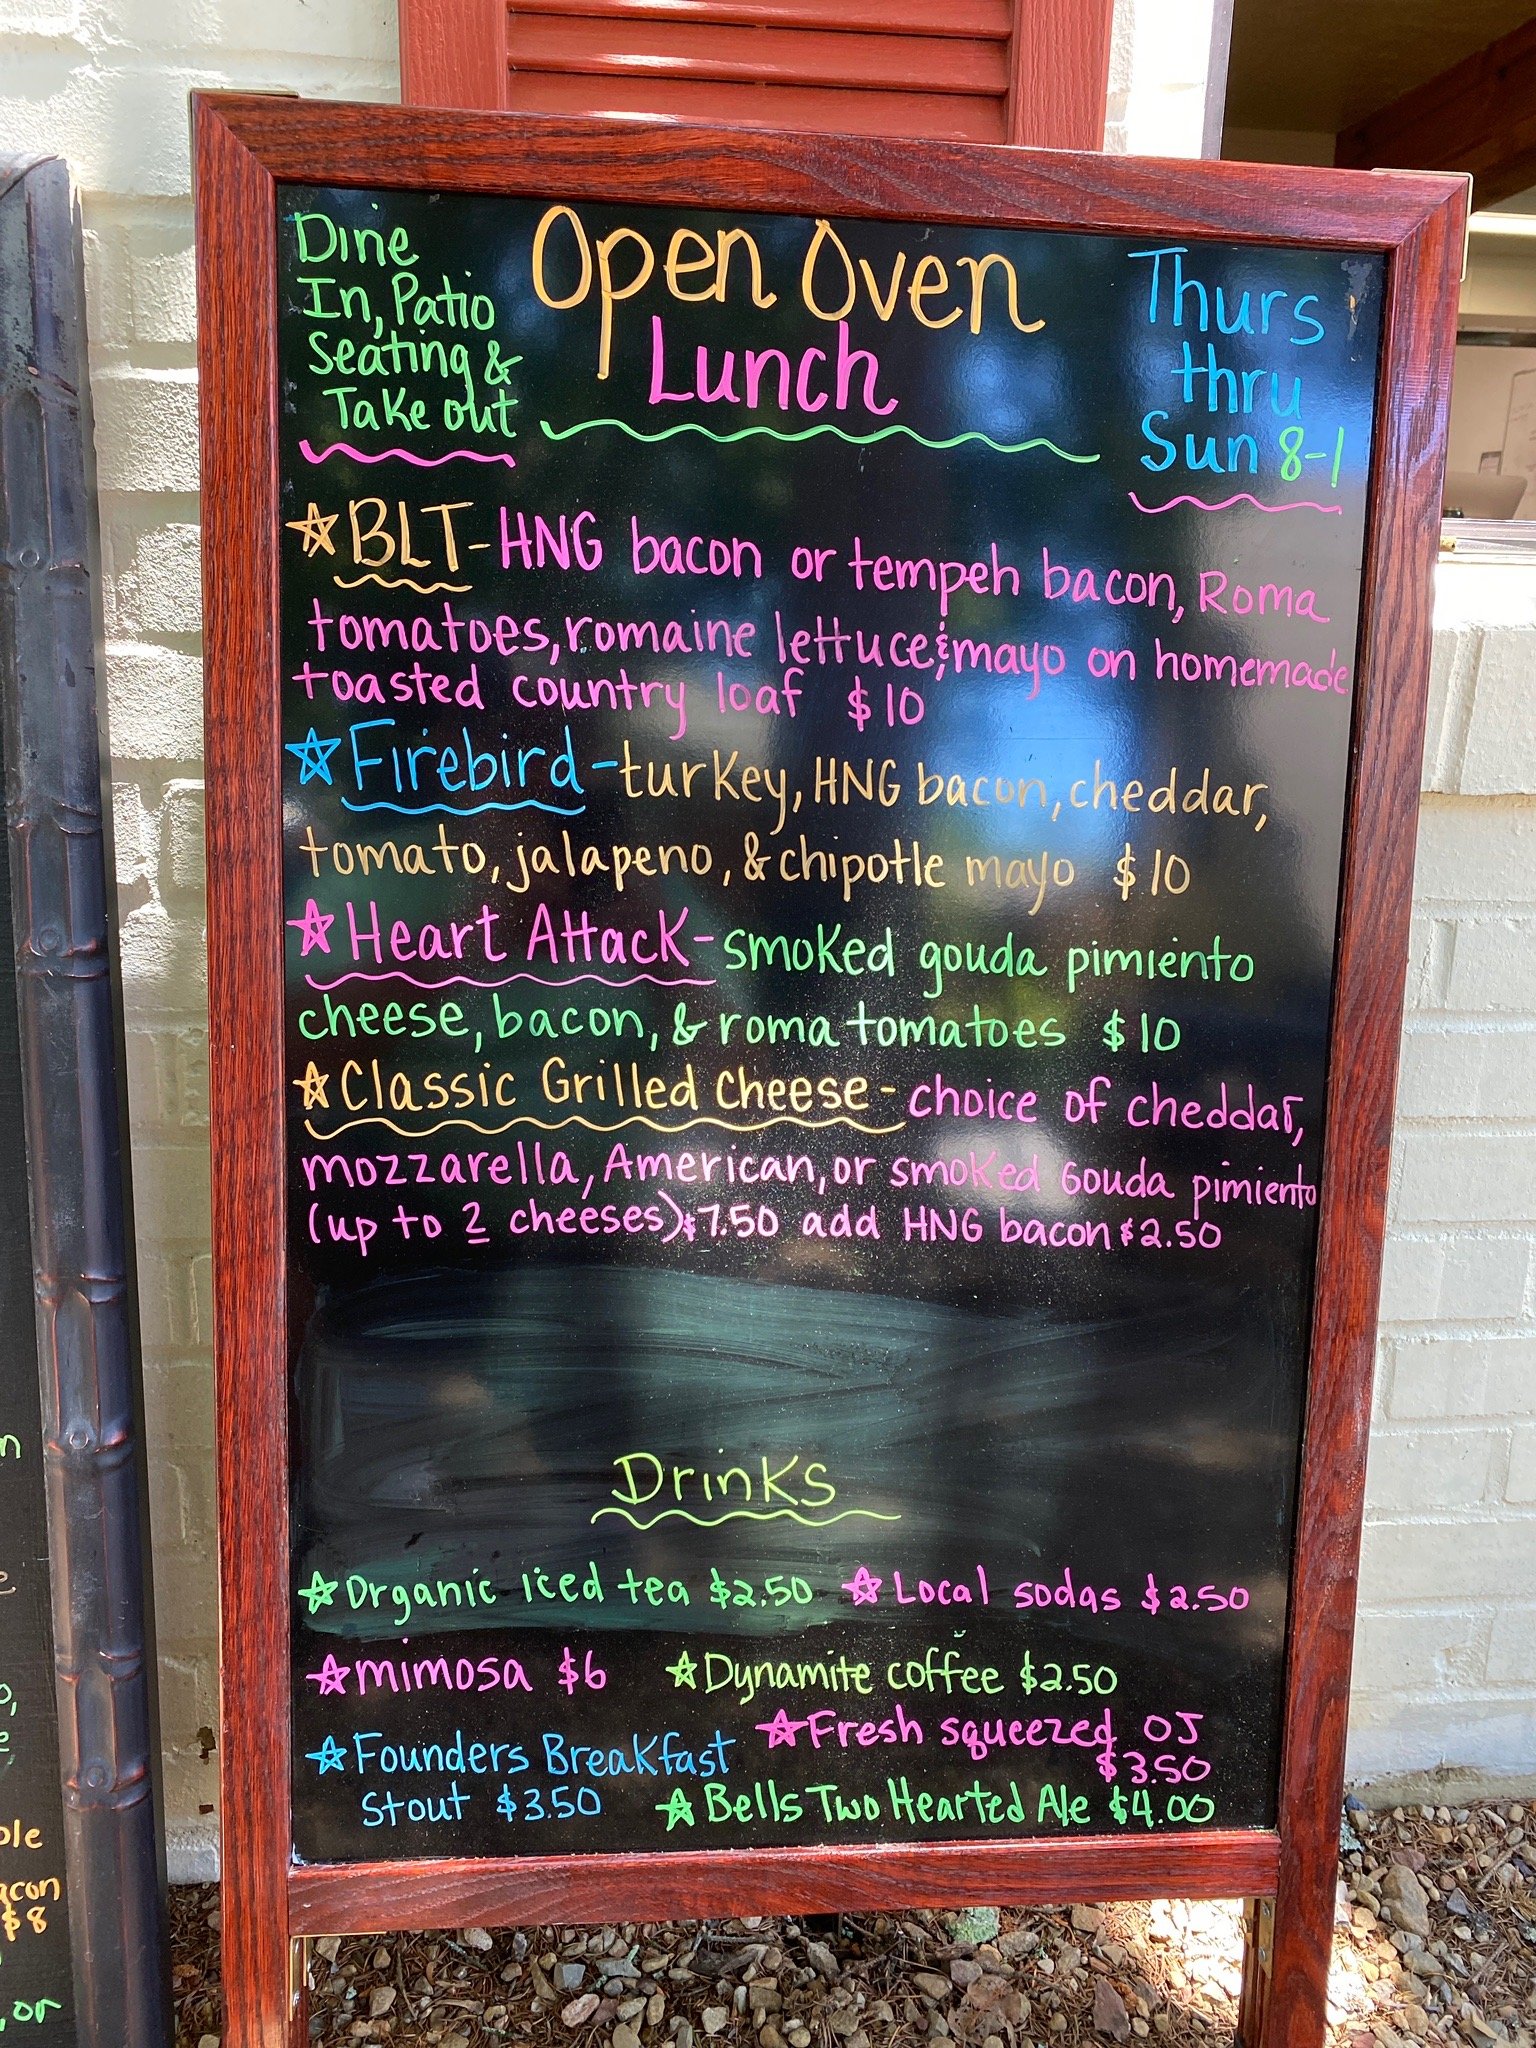 Dine
In, Patio
Seating &
Take out
Open Oven
Lunch
Thurs
thru
Sun 8-1
BLT- HNG bacon or tempeh bacon, Roma
tomatoes, romaine lettuce, & mayo on homemade
toasted country loaf $10
Firebird - turkey, HNG bacon, cheddar,
tomato, jalapeno, & chipotle mayo $10
Heart Attack - smoked gouda pimiento
cheese, bacon, & roma tomatoes $10
Classic Grilled Cheese - choice of cheddar,
mozzarella, American, or smoked Gouda pimiento
(up to 2 cheeses) $7.50 add HNG bacon $2.50
Drinks
Organic iced tea $2.50 Local sodas $2.50
mimosa $6 Dynamite coffee $2.50
Founders Breakfast
Stout $3.50
Fresh squeezed OJ
$3.50
Bells Two Hearted Ale $4.00
$8
, or